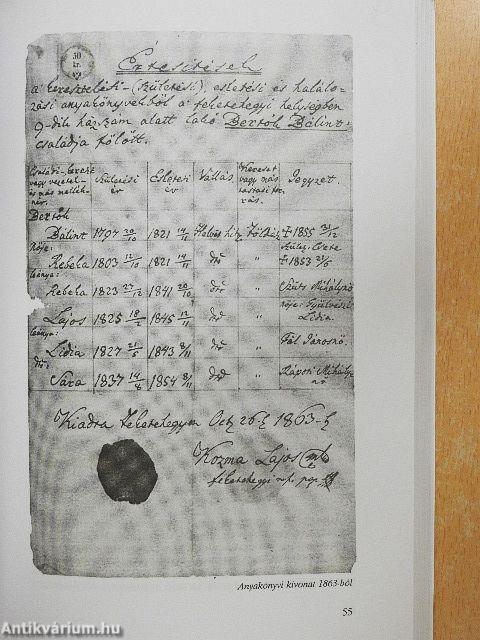 50
kr.
Értesítések
a keresztelési-(születési), esketési és halálo-
zási anyakönyvekből a feketehegyi helységben
9-dik házszám alatt lakó Bértók Bálint
családja fölött.
Családi-, kereszt
vagy vezeték-
és más mellék-
név.
Születési
év
Esketési
év
Vallás.
Kereset
vagy más
tartási for-
rás.
Jegyzet.
Bértók
Bálint 1797 20/10 1821 14/11 Helvét hit. Földész † 1855 3/12
Nője: Szüle. Csete
Rebeka 1803 12/10 1821 14/11 dtt „ † 1853 2/6
leánya:
Rebeka 1823 27/12 1841 20/10 dtt „ Szüts Mihályné
Lajos 1825 18/2 1845 12/11 dtt „ nője: Gyülvészi
Lidia.
leánya:
Lidia 1827 21/5 1843 8/11 dtt „ Pál Jánosné.
dtt:
Sára 1837 14/8 1854 8/11 dtt „ Rápoti Mihály-
né
Kiadva Feketehegyen Oct. 26-n 1863-n
Kozma Lajos
feketehegyi ref. pap
Anyakönyvi kivonat 1863-ból
55
Antikvárium.hu